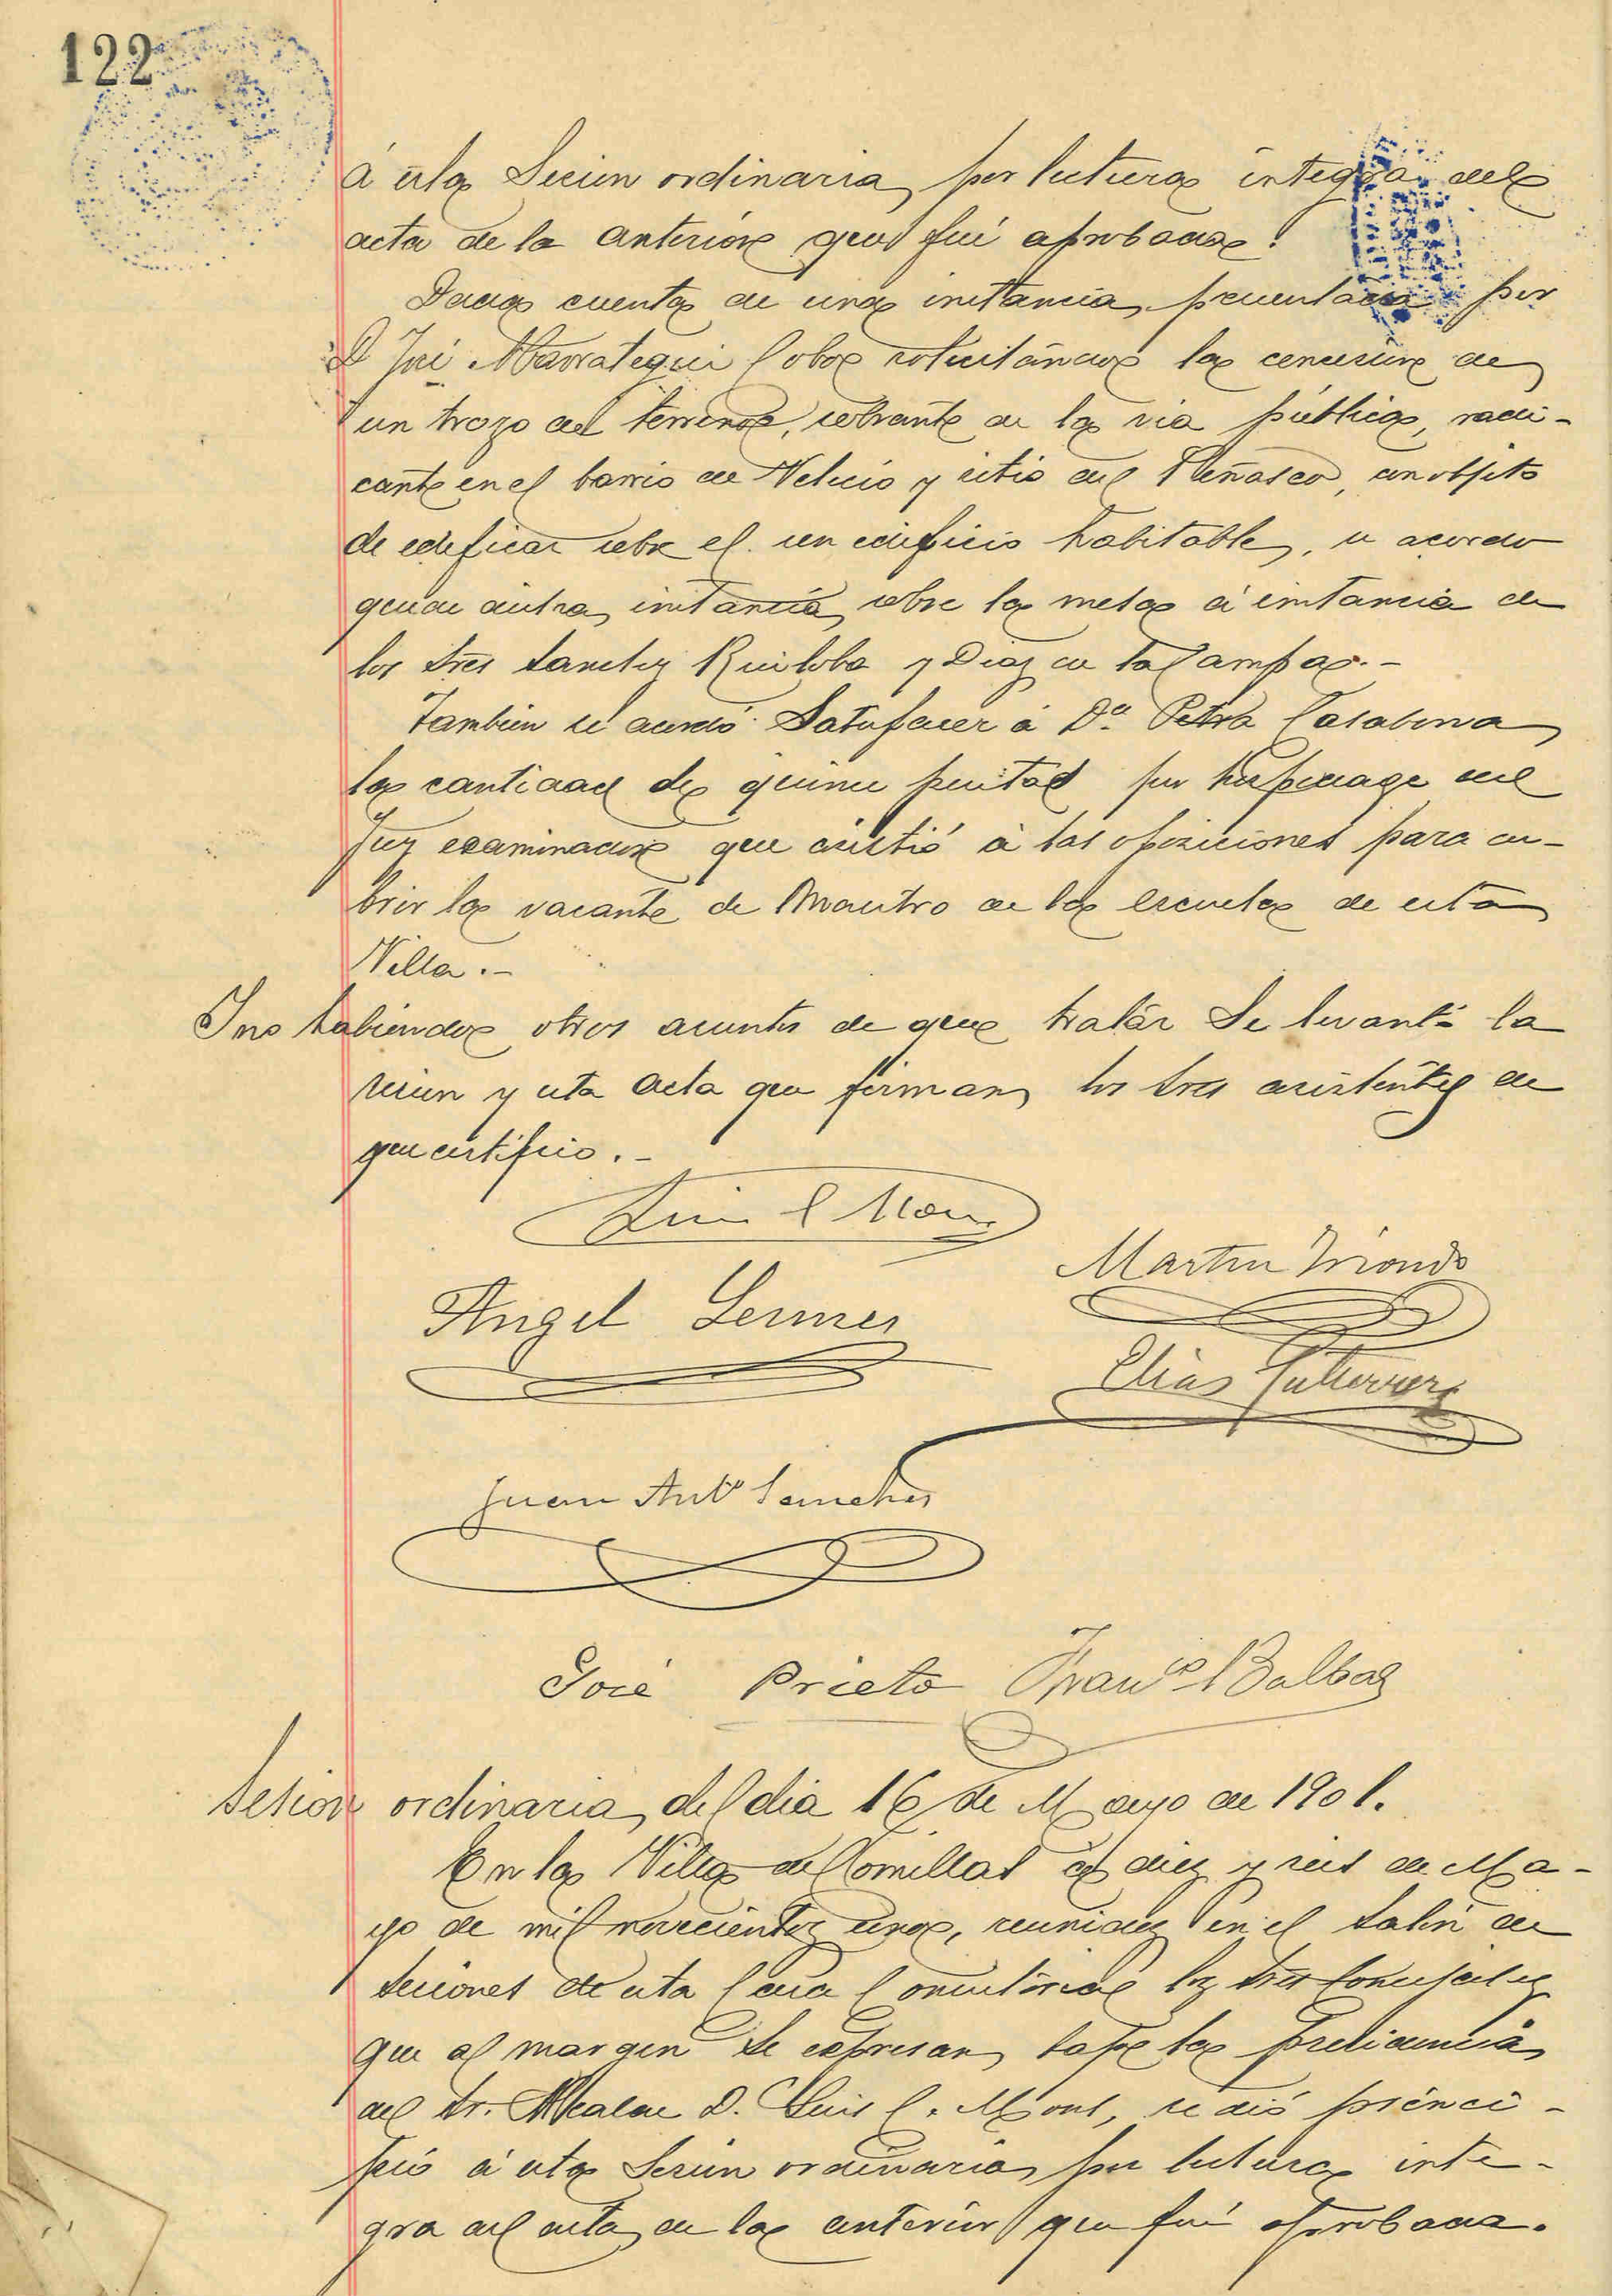 122
á esta Sesion ordinaria, por lectura integra del
acta de la anterior que fué aprobada.
Dada cuenta de una instancia, presentada por
D José Marrategui Cobo solicitando la concesion de
un trozo del terreno, sobrante de la via pública, radi-
cante en el barrio de Velecio y sitio del Peñasco, con objeto
de edificar sobre el un edificio habitable, se acordo
quede instancia sobre la mesa á instancia de
los Sres Sanchez Ruiloba y Diaz de la Campa.-
Tambien se acordó Satisfacer á Dª. Petra Casabona
la cantidad de quince pesetas por hospedage del
Juez examinador que asistió á las oposiciones para cu-
brir la vacante de Maestro de la escuela de esta
Villa.-
Y no habiendo otros asuntos de que tratár Se levantó la
sesion y esta acta que firman, los Sres asistentes de
que certifico.-
Luis C Mons
Martin Iriondo
Angel Lermes
Elias Gutierrez
Juan Antº Sanchez
José Prieto Franco Balbas
Sesion ordinaria, del dia 16 de Mayo de 1901.
En la Villa de Comillas á diez y seis de Ma-
yo de mil novecientos uno, reunidos en el Salón de
Sesiones de esta Casa Consistorial los Sres Concejales
que al margen Se expresan, bajo la presidencia
del Sr. Alcalde D. Luis C. Mons, se dió princi-
pió á esta Sesion ordinaria, por lectura inte-
gra del acta, de la anterior que fué aprobada.